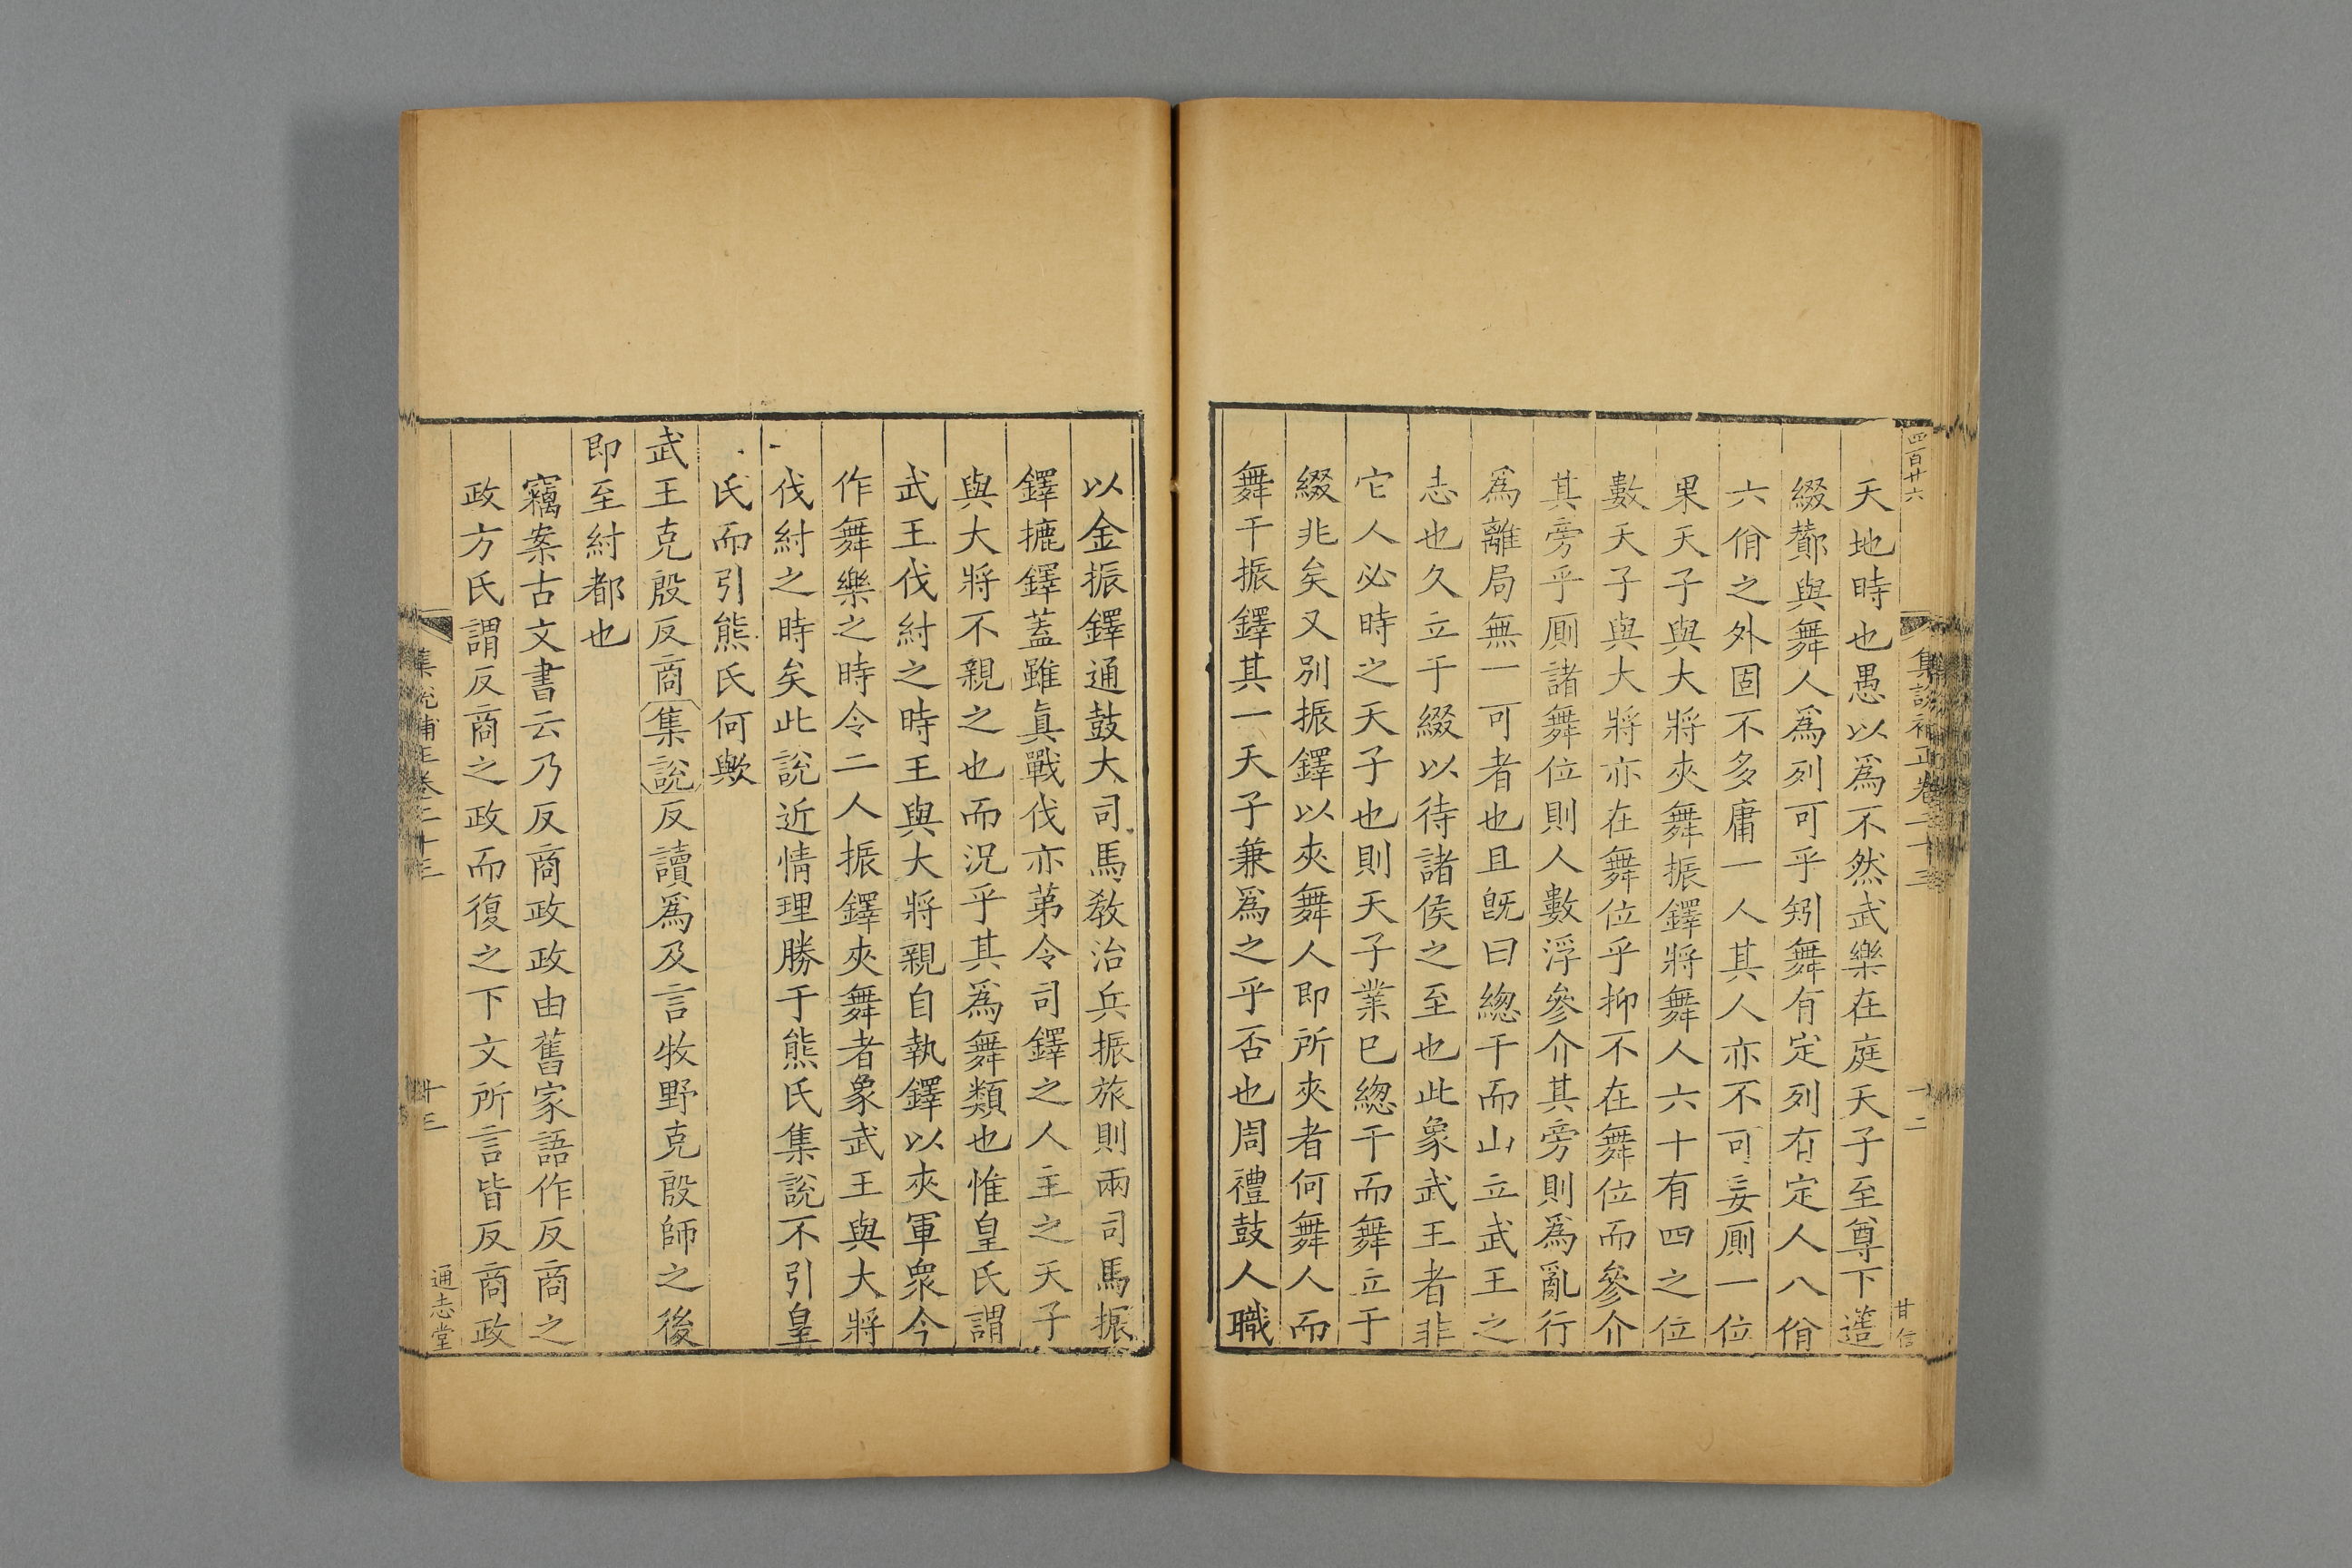 四百廿六
集說補正卷二十三
十二
甘信
天地時也愚以爲不然武樂在庭天子至尊下遠
綴酇與舞人爲列可乎矧舞有定列有定人八佾
六佾之外固不多庸一人其人亦不可妄厠一位
果天子與大將夾舞振鐸將舞人六十有四之位
數天子與大將亦在舞位乎抑不在舞位而參介
其旁乎厠諸舞位則人數浮參介其旁則爲亂行
爲離局無一可者也且旣曰緫干而山立武王之
志也久立于綴以待諸侯之至也此象武王者非
它人必時之天子也則天子業已緫干而舞立于
綴非矣又別振鐸以夾舞人即所夾者何舞人而
舞干振鐸其一天子兼爲之乎否也周禮鼓人職
以金振鐸通鼓大司馬敎治兵振旅則兩司馬振
鐸摝鐸蓋雖眞戰伐亦苐令司鐸之人主之天子
與大將不親之也而況乎其爲舞類也惟皇氏謂
武王伐紂之時王與大將親自執鐸以夾軍衆今
作舞樂之時令二人振鐸夾舞者象武王與大將
伐紂之時矣此說近情理勝于熊氏集說不引皇
氏而引熊氏何歟
武王克殷反商集說反讀爲及言牧野克殷師之後
即至紂都也
竊案古文書云乃反商政政由舊家語作反商之
政方氏謂反商之政而復之下文所言皆反商政
集說補正卷二十三
十三
通志堂